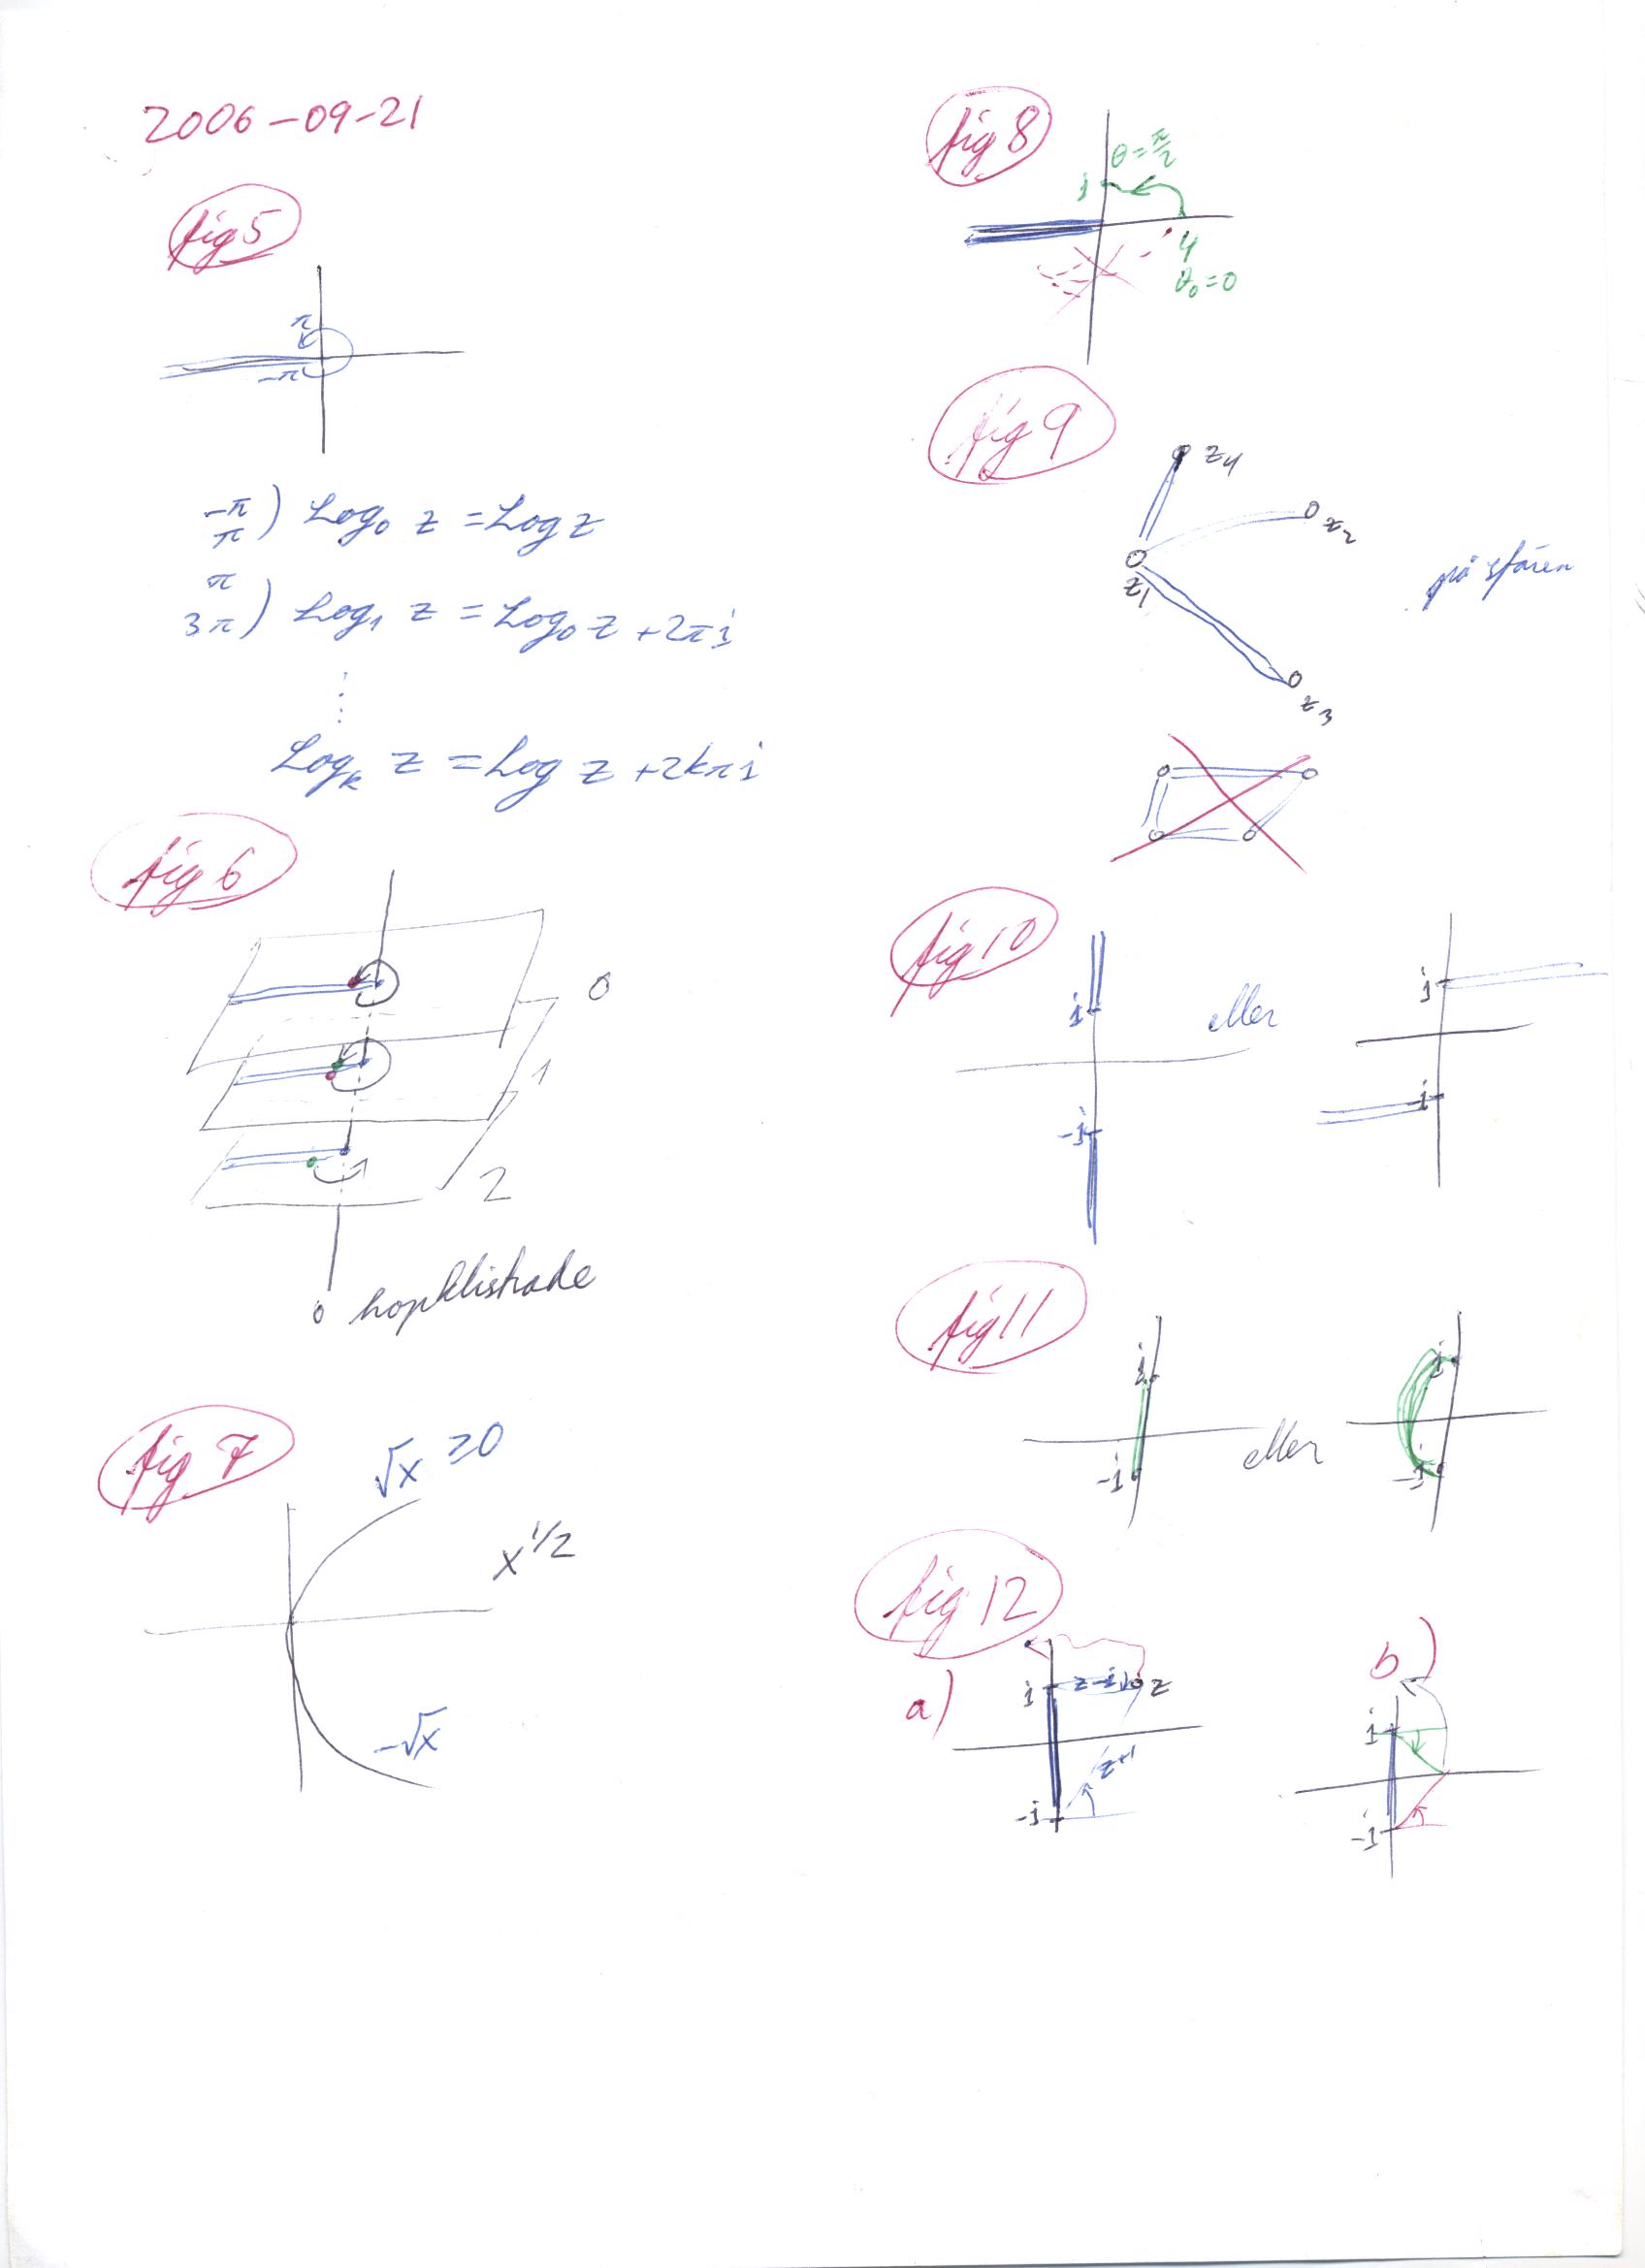 2006-09-21
fig 5
π
-π
-π
π ) Log₀ z = Log z
π
3π ) Log₁ z = Log₀ z + 2πi
⋮
Logₖ z = Log z + 2kπi
fig 6
0
1
2
0 hopklistrade
fig 7
√x ≥0
x^1/2
-√x
fig 8
θ=π/2
i
4
θ₀=0
fig 9
z₄
z₂
z₁
på sfären
z₃
fig 10
i
eller
i
-i
-i
fig 11
i
i
-i
eller
-i
fig 12
a)
i
z-i
z
z+i
-i
b)
i
-i